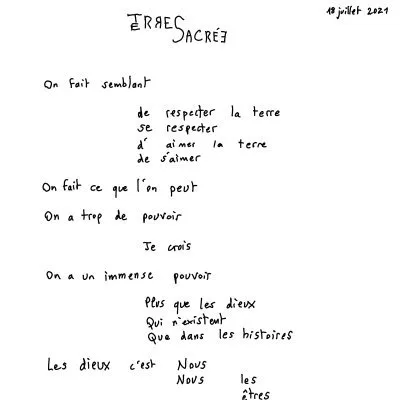 TERRE SACRÉE
18 juillet 2021
On fait semblant
de respecter la terre
se respecter
d'aimer la terre
de s'aimer
On fait ce que l'on peut
On a trop de pouvoir
Je crois
On a un immense pouvoir
Plus que les dieux
Qui n'existent
Que dans les histoires
Les dieux c'est Nous
Nous les
êtres